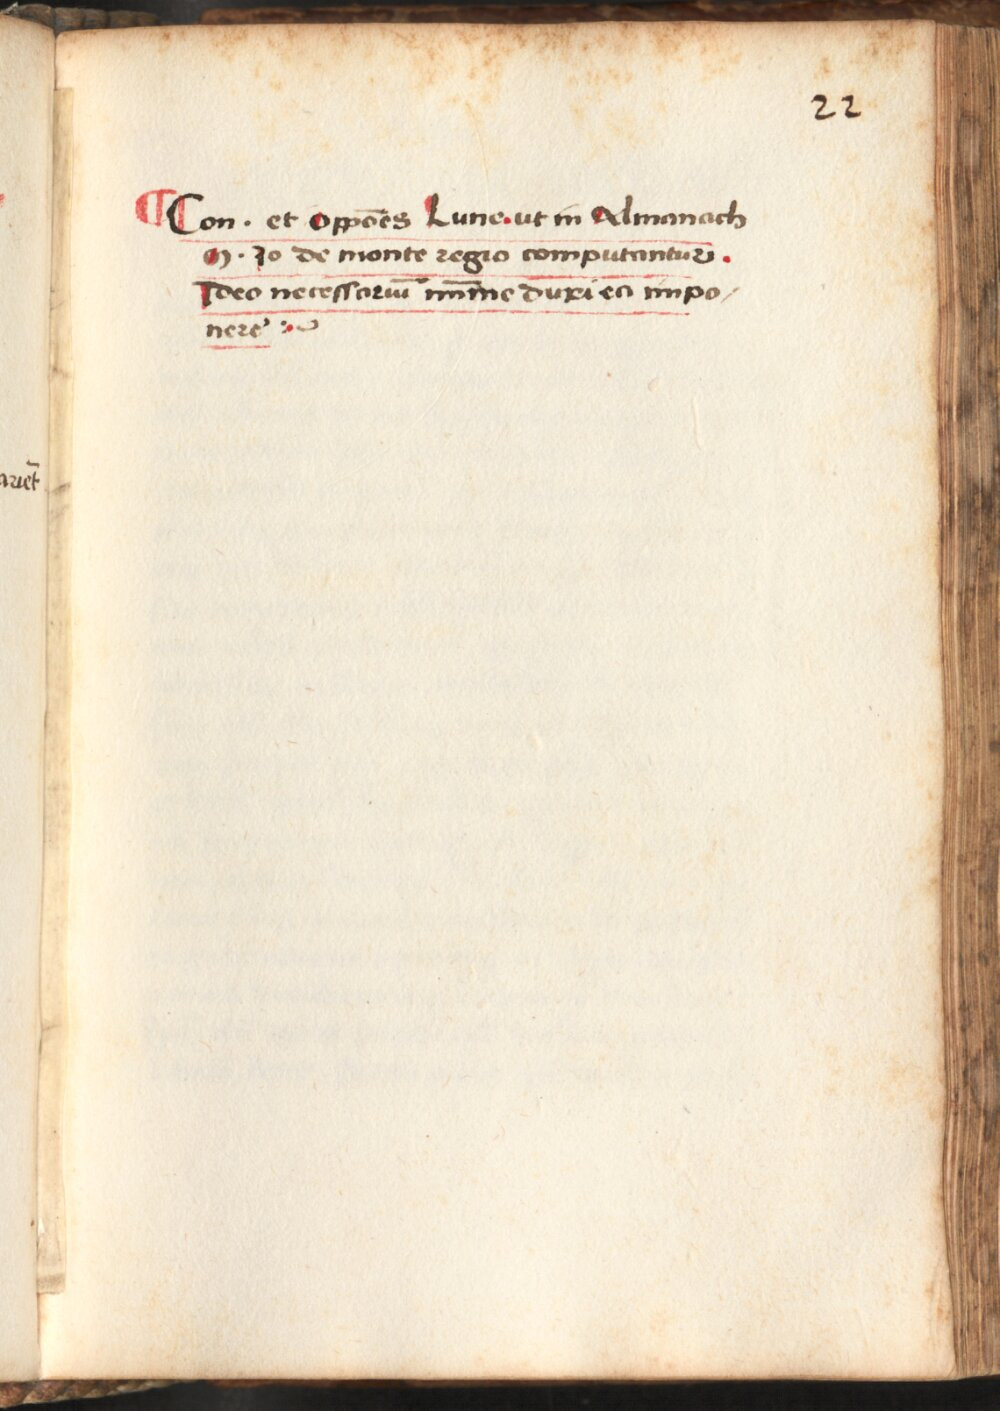 22
¶ Con · et oppōes Lune · ut in Almanach
M · Jo de monte regio computantur .
Ideo necessariū mīme duxi ea impo/
nere
ariet̄